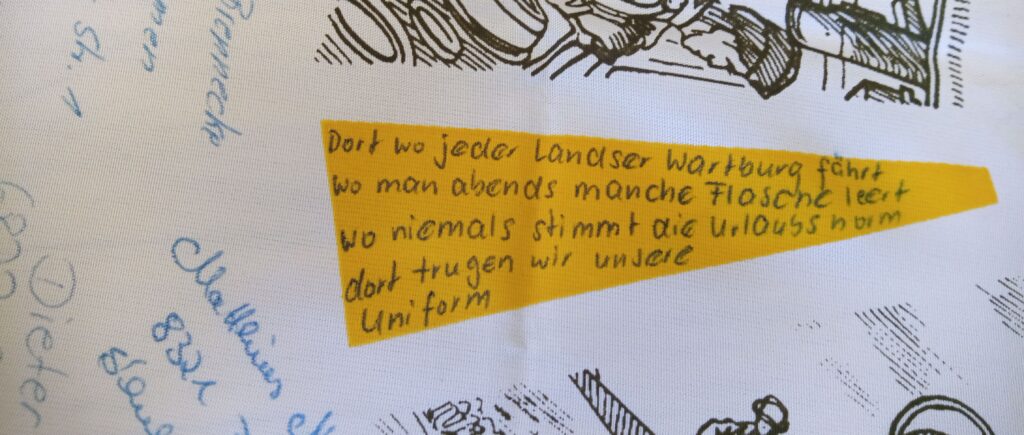 Dort wo jeder Landser Wartburg fährt
wo man abends manche Flasche leert
wo niemals stimmt die Urlaubsnorm
dort trugen wir unsere
Uniform
8321
Dieter